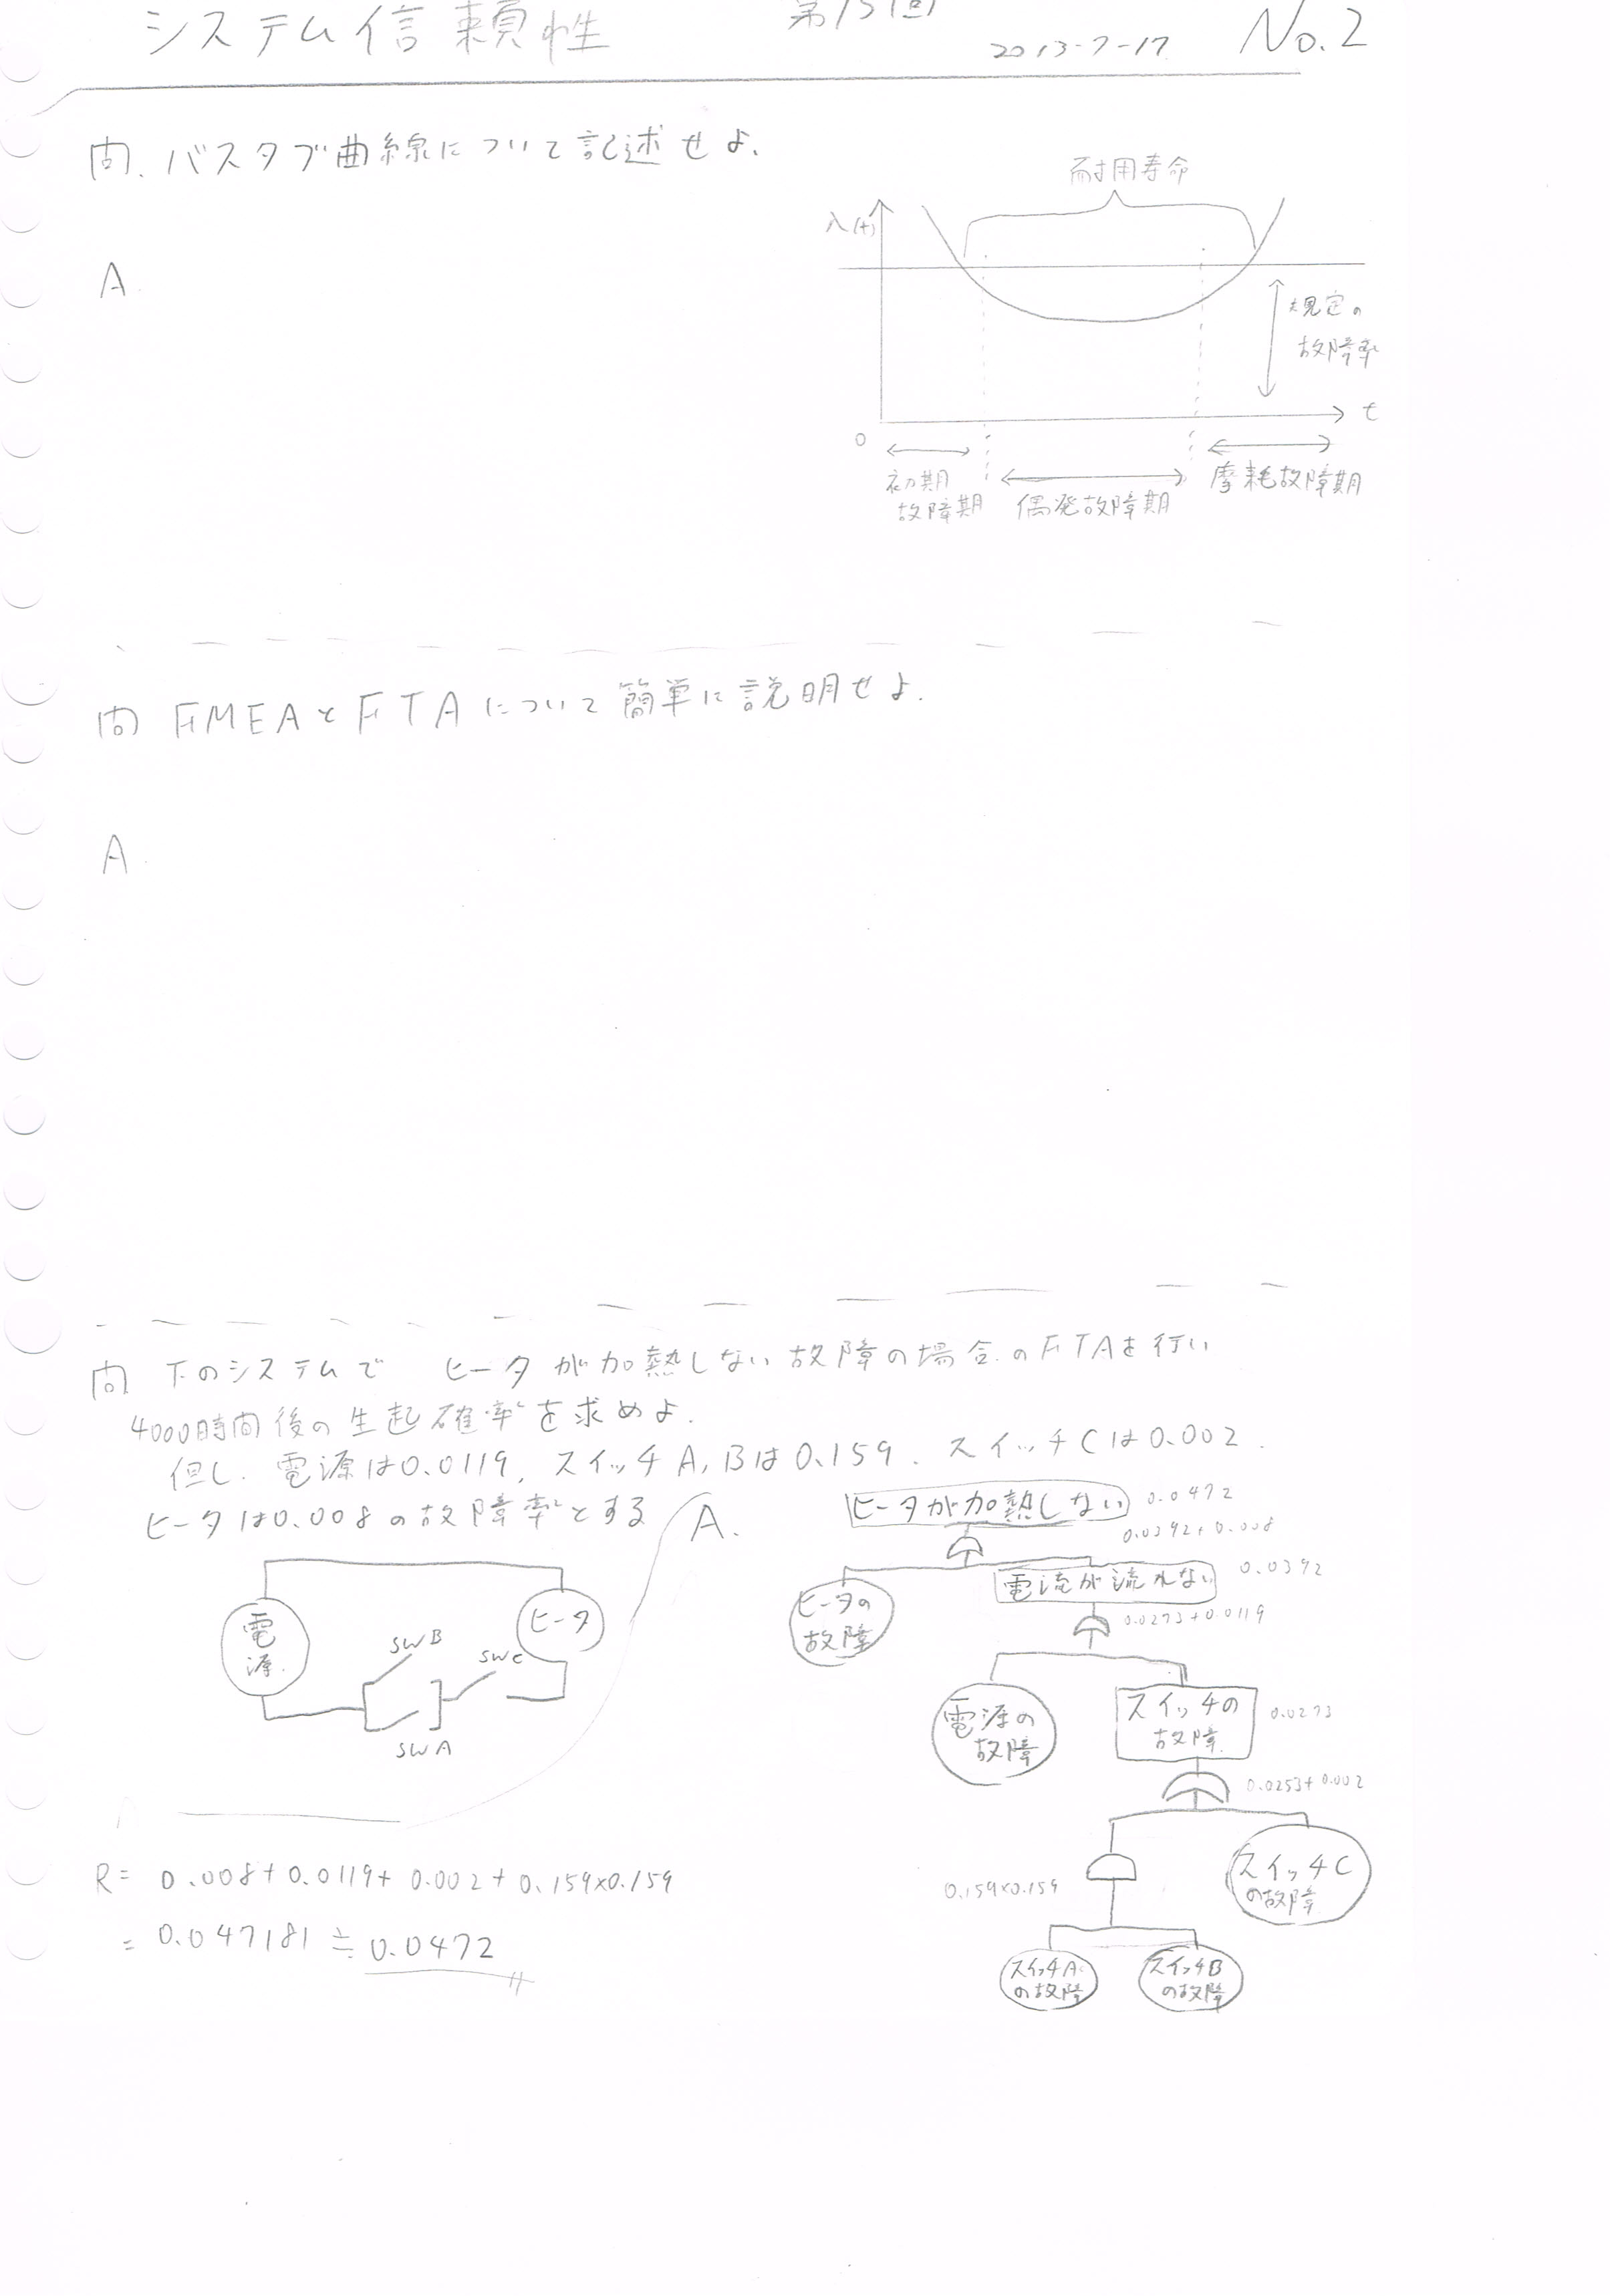 システム信頼性 第15回 2013-7-17 No.2
問. バスタブ曲線について記述せよ.
A
耐用寿命
λ(t)
規定の
故障率
t
0
初期
故障期
偶発故障期
摩耗故障期
問 FMEAとFTAについて簡単に説明せよ.
A
問 下のシステムで ヒータが加熱しない故障の場合のFTAを行い
4000時間後の生起確率を求めよ.
但し. 電源は0.0119, スイッチA,Bは0.159. スイッチCは0.002.
ヒータは0.008の故障率とする
電源
ヒータ
SWB
SWC
SWA
R= 0.008+0.0119+0.002+0.159×0.159
= 0.047181≒0.0472
A.
ヒータが加熱しない 0.0472
0.0392+0.008
ヒータの
故障
電流が流れない 0.0392
0.0273+0.0119
電源の
故障
スイッチの
故障
0.0273
0.0253+0.002
0.159×0.159
スイッチC
の故障
スイッチA
の故障
スイッチB
の故障